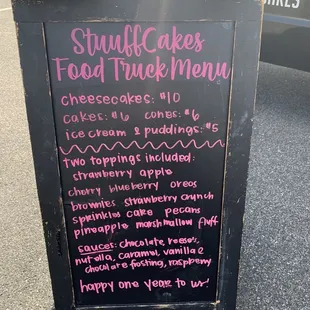 StuuffCakes
Food Truck Menu
cheesecakes: $10
cakes: $6 cones: $6
ice cream & puddings: $5
two toppings included:
strawberry apple
cherry blueberry oreos
brownies strawberry crunch
sprinkles cake pecans
pineapple marshmallow fluff
sauces: chocolate, reese's,
nutella, caramel, vanilla &
chocolate frosting, raspberry
happy one year to us!